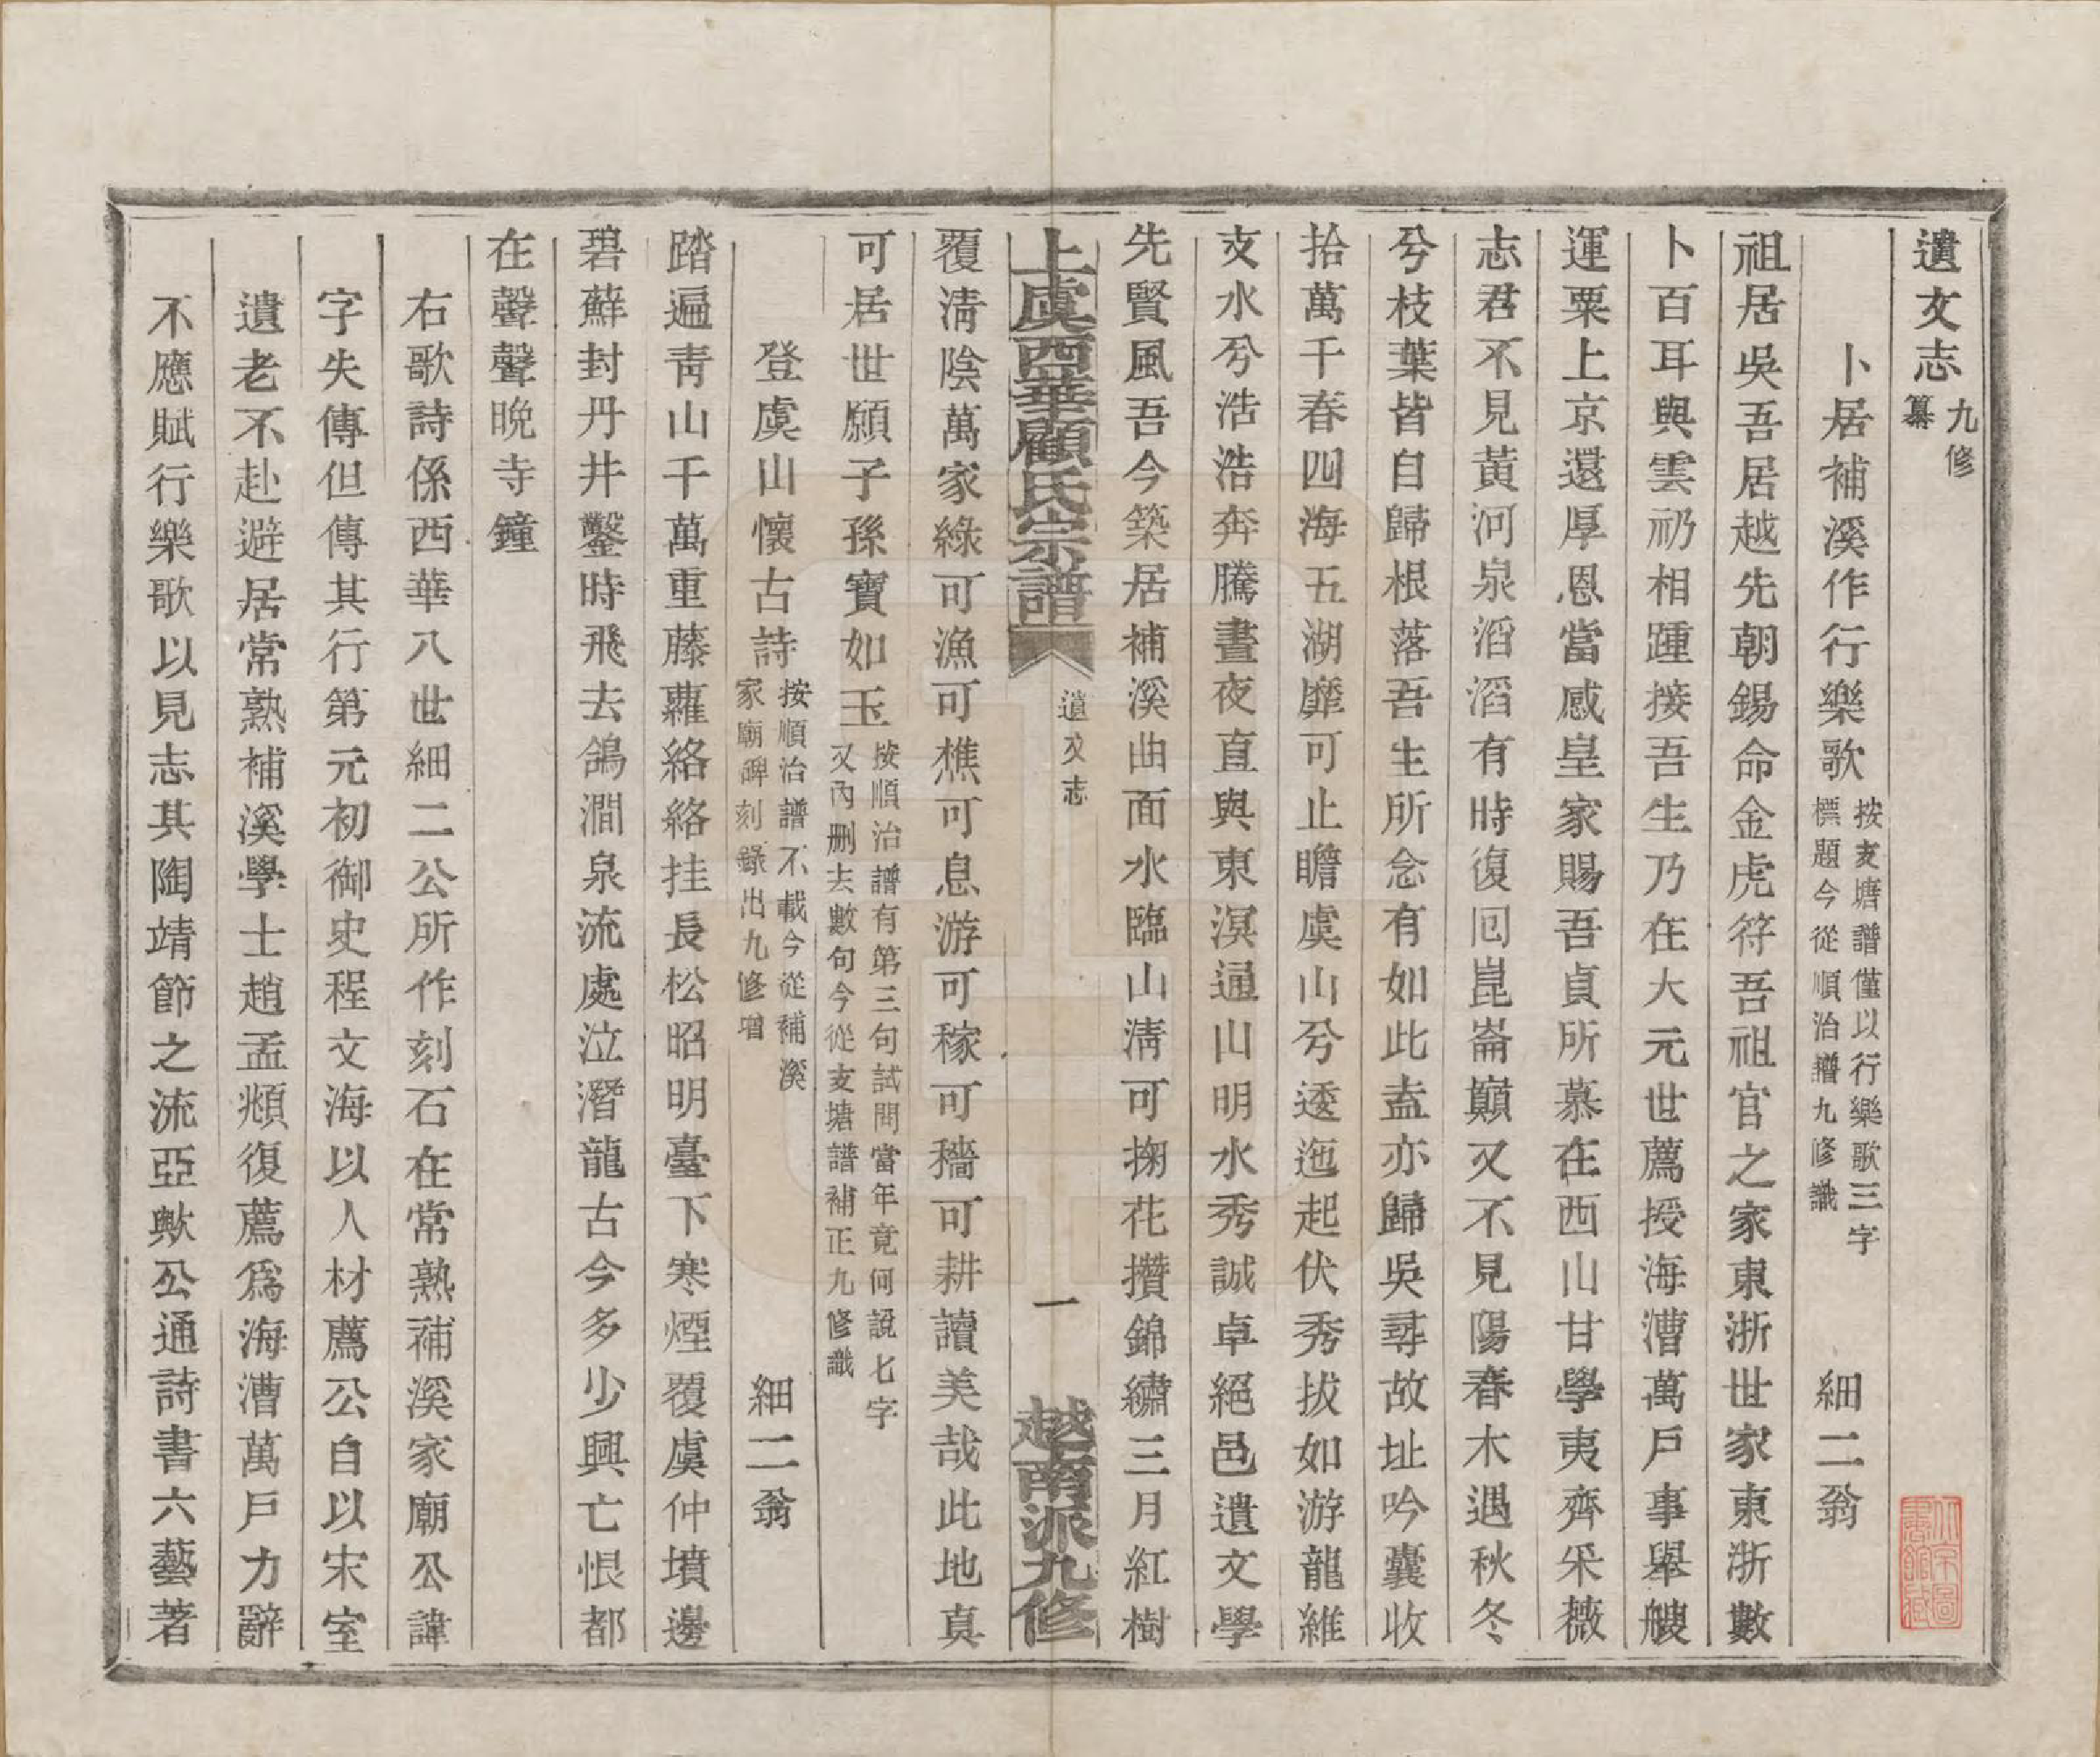 遺文志九修纂
卜居補溪作行樂歌按支塘譜僅以行樂歌三字標題今從順治譜九修識 細二翁
祖居吳吾居越先朝錫命金虎符吾祖官之家東浙世家東浙數
卜百耳與雲礽相踵接吾生乃在大元世薦授海漕萬戶事舉艘
運粟上京還厚恩當感皇家賜吾貞所慕在西山甘學夷齊采薇
志君不見黃河泉滔滔有時復回崑崙巔又不見陽春木遇秋冬
兮枝葉皆自歸根落吾生所念有如此盍亦歸吳尋故址吟囊收
拾萬千春四海五湖靡可止瞻虞山兮逶迤起伏秀拔如游龍維
支水兮浩浩奔騰晝夜直與東溟通山明水秀誠卓絕邑遺文學
先賢風吾今築居補溪曲面水臨山淸可掬花攢錦繡三月紅樹
上虞西華顧氏宗譜 遺文志 一 越南派九修
覆淸陰萬家綠可漁可樵可息游可稼可穡可耕讀美哉此地真
可居世願子孫寶如玉按順治譜有第三句試問當年竟何說七字又內刪去數句今從支塘譜補正九修識
登虞山懷古詩按順治譜不載今從補溪家廟碑刻錄出九修增 細二翁
踏遍靑山千萬重藤蘿絡絡挂長松昭明臺下寒煙覆虞仲墳邊
碧蘚封丹井鑿時飛去鴿澗泉流處泣潛龍古今多少興亡恨都
在聲聲晩寺鐘
右歌詩係西華八世細二公所作刻石在常熟補溪家廟公諱
字失傳但傳其行第元初御史程文海以人材薦公自以宋室
遺老不赴避居常熟補溪學士趙孟頫復薦爲海漕萬戶力辭
不應賦行樂歌以見志其陶靖節之流亞歟公通詩書六藝著